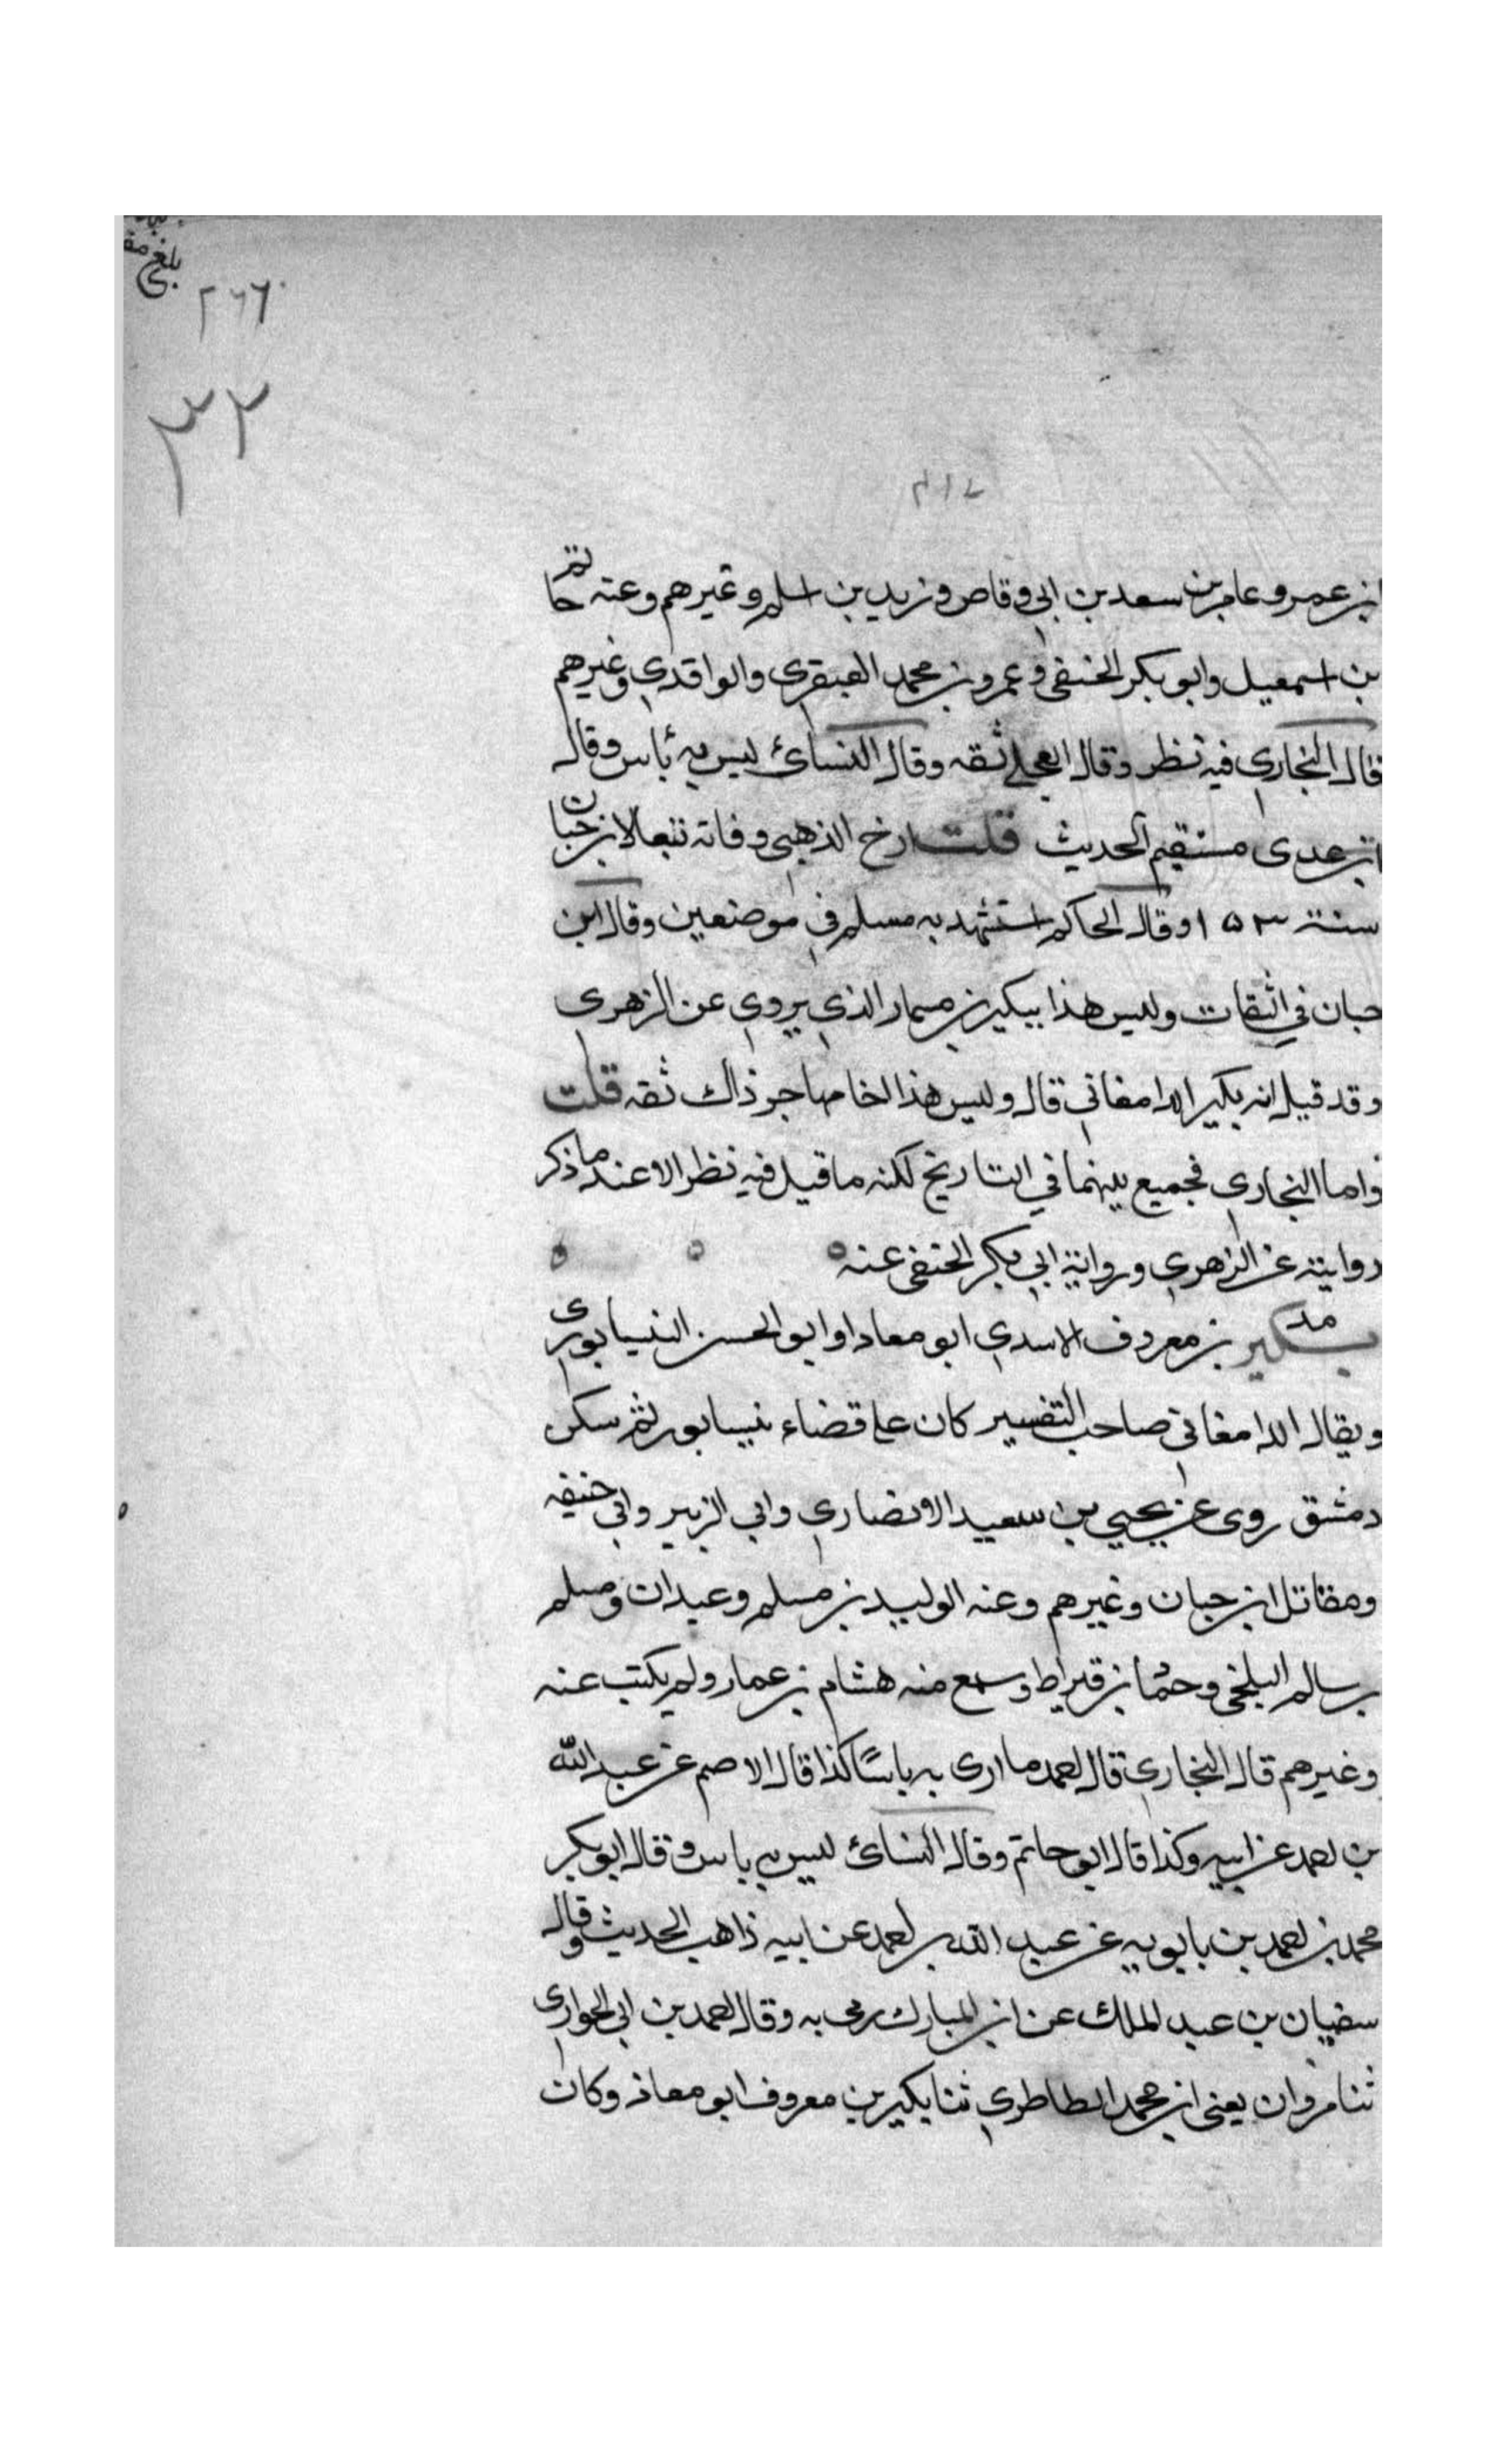 بلغ
٢٦٦
٣٢
٢١٧
ابن عمرو عامر بن سعد بن ابي وقاص وزيد بن اسلم وغيرهم وعنه حاتم
بن اسمعيل وابو بكر الحنفي وعمرو بن محمد العبقري والواقدي وغيرهم
قال البخاري فيه نظر وقال العجلي ثقه وقال النسائ ليس به بأس وقال
ابن عدى مستقيم الحديث قلت ارخ الذهبي وفاته تبعا لابن حبان
سنة ١٥٣ وقال الحاكم استشهد به مسلم في موضعين وقال ابن
حبان في الثقات وليس هذا ببكير بن مسمار الذي يروي عن الزهرى
وقد قيل انه بكير الدامغاني قال وليس هذا اخا مهاجر ذاك ثقه قلت
واما البخاري فجميع بينهما في التاريخ لكنه ما قيل فيه نظر الا عند ما ذكر
روايته عن الزهري ورواية ابي بكر الحنفي عنه
مد بكير بن معروف الاسدي ابو معاد او ابو الحسن النيسابورى
ويقال الدامغاني صاحب التفسير كان على قضاء نيسابور ثم سكن
دمشق روى عن يحيي بن سعيد الانصاري وابي الزبير وابي حنيفه
ومقاتل ابن حبان وغيرهم وعنه الوليد بن مسلم وعبدان ومسلم
بن سالم البلخي وحماد بن قيراط وسمع منه هشام بن عمار ولم يكتب عنه
وغيرهم قال البخاري قال احمد ما ارى به باسًا كذا قال الاصم عن عبد الله
بن احمد عن ابيه وكذا قال ابو حاتم وقال النسائ ليس به باس وقال ابو بكر
محمد بن احمد بن بابويه عن عبد الله بن احمد عن ابيه ذاهب الحديث وقال
سفيان بن عبد الملك عن ابن المبارك رمى به وقال احمد بن ابي الحوارى
ثنا مروان يعنى ابن محمد الطاطري ثنا بكير بن معروف ابو معاذ وكان